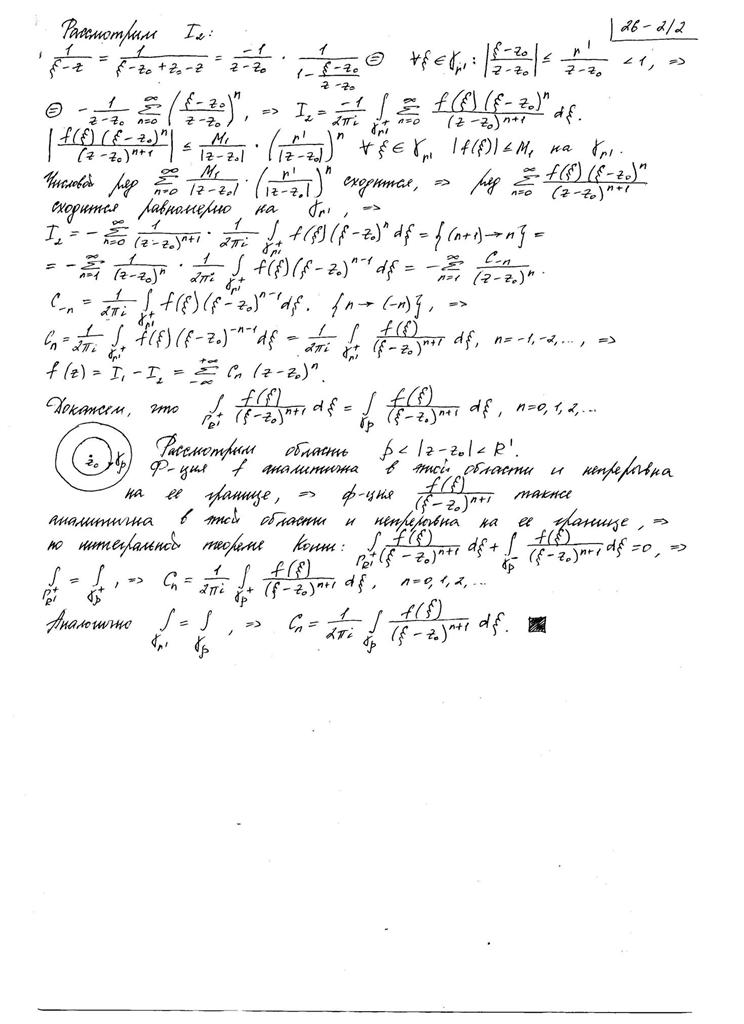 26 – 2/2
Рассмотрим I₂:
1/(ξ–z) = 1/(ξ–z₀+z₀–z) = –1/(z–z₀) · 1/(1 – (ξ–z₀)/(z–z₀)) ⊜ ∀ξ ∈ γ_r': |(ξ–z₀)/(z–z₀)| ≤ r'/(z–z₀) < 1, =>
⊜ – 1/(z–z₀) ∑_{n=0}^∞ ((ξ–z₀)/(z–z₀))ⁿ, => I₂ = –1/(2πi) ∫_{γ_r'^+} ∑_{n=0}^∞ f(ξ)(ξ–z₀)ⁿ/(z–z₀)ⁿ⁺¹ dξ.
|f(ξ)(ξ–z₀)ⁿ/(z–z₀)ⁿ⁺¹| ≤ M₁/|z–z₀| · (r'/|z–z₀|)ⁿ ∀ ξ ∈ γ_r' |f(ξ)| ≤ M₁ на γ_r'.
Числовой ряд ∑_{n=0}^∞ M₁/|z–z₀| · (r'/|z–z₀|)ⁿ сходится, => ряд ∑_{n=0}^∞ f(ξ)(ξ–z₀)ⁿ/(z–z₀)ⁿ⁺¹
сходится равномерно на γ_r', =>
I₂ = – ∑_{n=0}^∞ 1/(z–z₀)ⁿ⁺¹ · 1/(2πi) ∫_{γ_r'^+} f(ξ)(ξ–z₀)ⁿ dξ = {(n+1)→n} =
= – ∑_{n=1}^∞ 1/(z–z₀)ⁿ · 1/(2πi) ∫_{γ_r'^+} f(ξ)(ξ–z₀)ⁿ⁻¹ dξ = – ∑_{n=1}^∞ C₋ₙ/(z–z₀)ⁿ.
C₋ₙ = 1/(2πi) ∫_{γ_r'^+} f(ξ)(ξ–z₀)ⁿ⁻¹ dξ. {n → (–n)}, =>
Cₙ = 1/(2πi) ∫_{γ_r'^+} f(ξ)(ξ–z₀)⁻ⁿ⁻¹ dξ = 1/(2πi) ∫_{γ_r'^+} f(ξ)/(ξ–z₀)ⁿ⁺¹ dξ, n=–1,–2,..., =>
f(z) = I₁ – I₂ = ∑_{–∞}^{+∞} Cₙ (z–z₀)ⁿ.
Докажем, что ∫_{Γ_R'^+} f(ξ)/(ξ–z₀)ⁿ⁺¹ dξ = ∫_{γ_ρ} f(ξ)/(ξ–z₀)ⁿ⁺¹ dξ, n=0,1,2,...
z₀ γ_ρ Рассмотрим область ρ < |z–z₀| < R'.
Ф-ция f аналитична в этой области и непрерывна
на ее границе, => ф-ция f(ξ)/(ξ–z₀)ⁿ⁺¹ также
аналитична в этой области и непрерывна на ее границе, =>
по интегральной теореме Коши: ∫_{Γ_R'^+} f(ξ)/(ξ–z₀)ⁿ⁺¹ dξ + ∫_{γ_ρ^-} f(ξ)/(ξ–z₀)ⁿ⁺¹ dξ = 0, =>
∫_{Γ_R'^+} = ∫_{γ_ρ^+}, => Cₙ = 1/(2πi) ∫_{γ_ρ^+} f(ξ)/(ξ–z₀)ⁿ⁺¹ dξ, n=0,1,2,...
Аналогично ∫_{γ_r'} = ∫_{γ_ρ}, => Cₙ = 1/(2πi) ∫_{γ_ρ} f(ξ)/(ξ–z₀)ⁿ⁺¹ dξ. ■